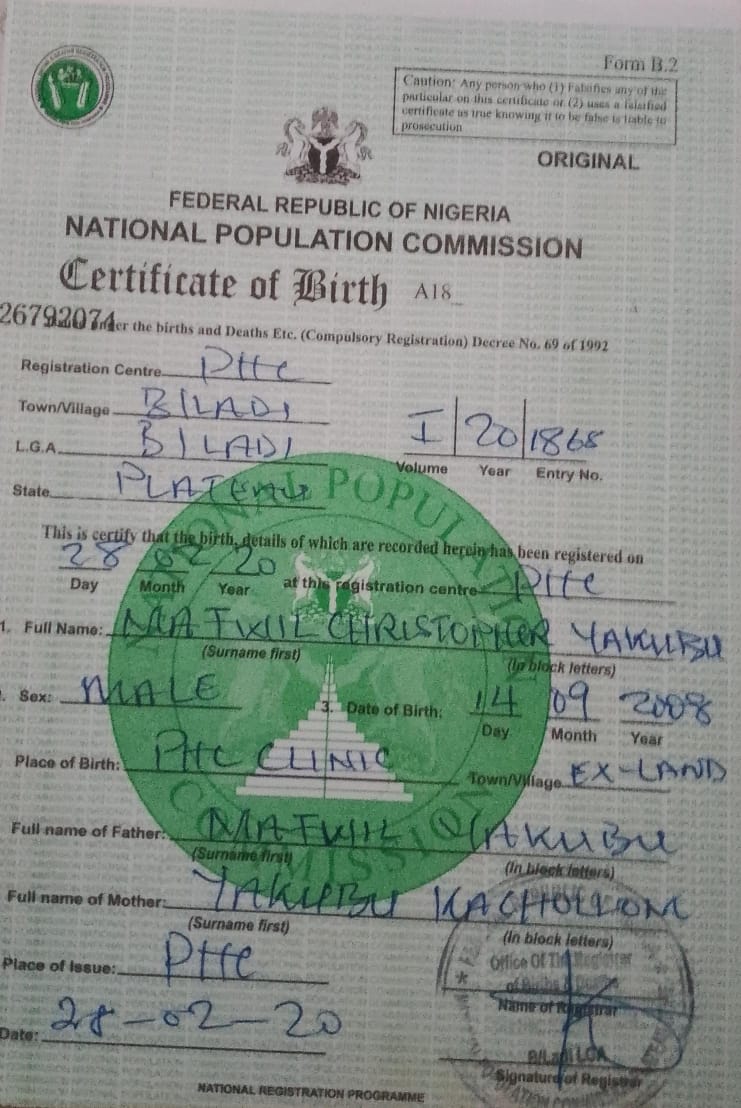 Form B.2
Caution: Any person who (1) Falsifies any of the
particular on this certificate or (2) uses a falsified
certificate as true knowing it to be false is liable to
prosecution
ORIGINAL
FEDERAL REPUBLIC OF NIGERIA
NATIONAL POPULATION COMMISSION
Certificate of Birth A18
26792074 the births and Deaths Etc. (Compulsory Registration) Decree No. 69 of 1992
Registration Centre PHC
Town/Village B/LADI
L.G.A. B/LADI I 20 1868
Volume Year Entry No.
State PLATEAU
This is certify that the birth, details of which are recorded herein has been registered on
28 02 20
Day Month Year at this registration centre PHC
1. Full Name: MATWIL CHRISTOPHER YAKUBU
(Surname first) (In block letters)
. Sex: MALE 3. Date of Birth: 14 09 2008
Day Month Year
Place of Birth: PHC CLINIC Town/Village EX-LAND
Full name of Father: MATWIL YAKUBU
(Surname first) (In block letters)
Full name of Mother: YAKUBU KACHOLLOM
(Surname first) (In block letters)
Place of Issue: PHC
Office Of The Registrar
Name of Registrar
Date: 28-02-20
B/Ladi LGA
Signature of Registrar
NATIONAL REGISTRATION PROGRAMME
NATIONAL POPULATION COMMISSION